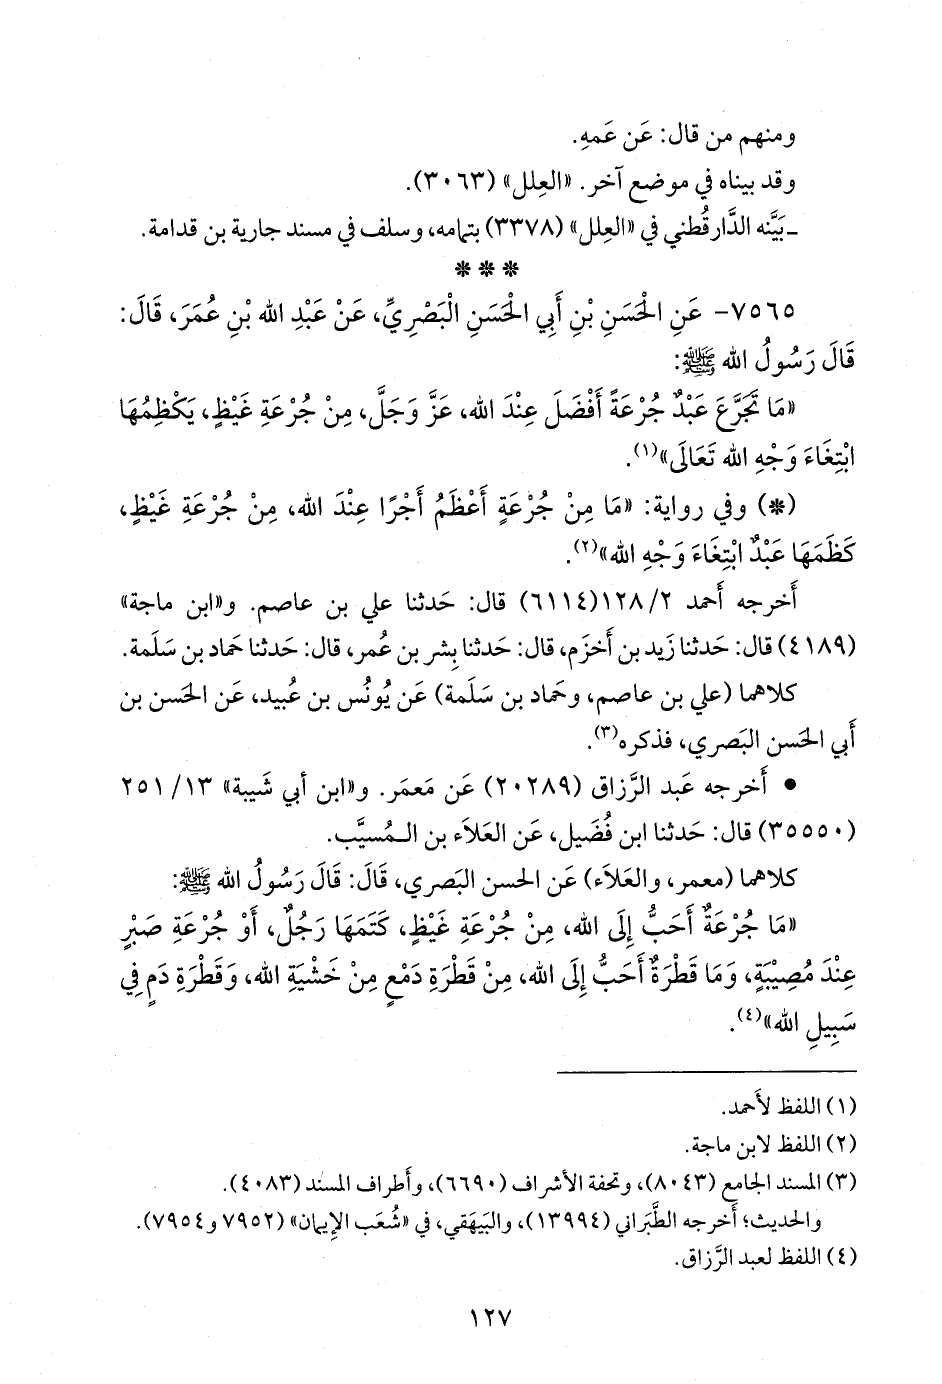 ومنهم من قال: عَن عَمهِ.
وقد بيناه في موضع آخر. «العِلل» (٣٠٦٣).
ـ بَيَّنه الدَّارقُطني في «العِلل» (٣٣٧٨) بتمامه، وسلف في مسند جارية بن قدامة.
* * *
٧٥٦٥- عَنِ الْحَسَنِ بْنِ أَبِي الْحَسَنِ الْبَصْرِيِّ، عَنْ عَبْدِ الله بْنِ عُمَرَ، قَالَ:
قَالَ رَسُولُ الله ﷺ:
«مَا تَجَرَّعَ عَبْدٌ جُرْعَةً أَفْضَلَ عِنْدَ الله، عَزَّ وَجَلَّ، مِنْ جُرْعَةِ غَيْظٍ، يَكْظِمُهَا
ابْتِغَاءَ وَجْهِ الله تَعَالَى»(١).
(*) وفي رواية: «مَا مِنْ جُرْعَةٍ أَعْظَمُ أَجْرًا عِنْدَ الله، مِنْ جُرْعَةِ غَيْظٍ،
كَظَمَهَا عَبْدٌ ابْتِغَاءَ وَجْهِ الله»(٢).
أَخرجه أَحمد ٢/ ١٢٨(٦١١٤) قال: حَدثنا علي بن عاصم. و«ابن ماجة»
(٤١٨٩) قال: حَدثنا زَيد بن أَخزَم، قال: حَدثنا بِشر بن عُمر، قال: حَدثنا حَماد بن سَلَمة.
كلاهما (علي بن عاصم، وحَماد بن سَلَمة) عَن يُونُس بن عُبيد، عَن الحَسن بن
أَبي الحَسن البَصري، فذكره(٣).
• أَخرجه عَبد الرَّزاق (٢٠٢٨٩) عَن مَعمَر. و«ابن أَبي شَيبة» ١٣/ ٢٥١
(٣٥٥٥٠) قال: حَدثنا ابن فُضَيل، عَن العَلاَء بن الـمُسيَّب.
كلاهما (معمر، والعَلاَء) عَن الحسن البَصري، قَالَ: قَالَ رَسُولُ الله ﷺ:
«مَا جُرْعَةٌ أَحَبُّ إِلَى الله، مِنْ جُرْعَةِ غَيْظٍ، كَتَمَهَا رَجُلٌ، أَوْ جُرْعَةِ صَبْرٍ
عِنْدَ مُصِيبَةٍ، وَمَا قَطْرَةٌ أَحَبُّ إِلَى الله، مِنْ قَطْرَةِ دَمْعٍ مِنْ خَشْيَةِ الله، وَقَطْرَةِ دَمٍ فِي
سَبِيلِ الله»(٤).
(١) اللفظ لأَحمد.
(٢) اللفظ لابن ماجة.
(٣) المسند الجامع (٨٠٤٣)، وتحفة الأشراف (٦٦٩٠)، وأَطراف المسند (٤٠٨٣).
والحديث؛ أَخرجه الطَّبَراني (١٣٩٩٤)، والبَيهَقي، في «شُعَب الإِيمان» (٧٩٥٢ و٧٩٥٤).
(٤) اللفظ لعبد الرَّزاق.
١٢٧